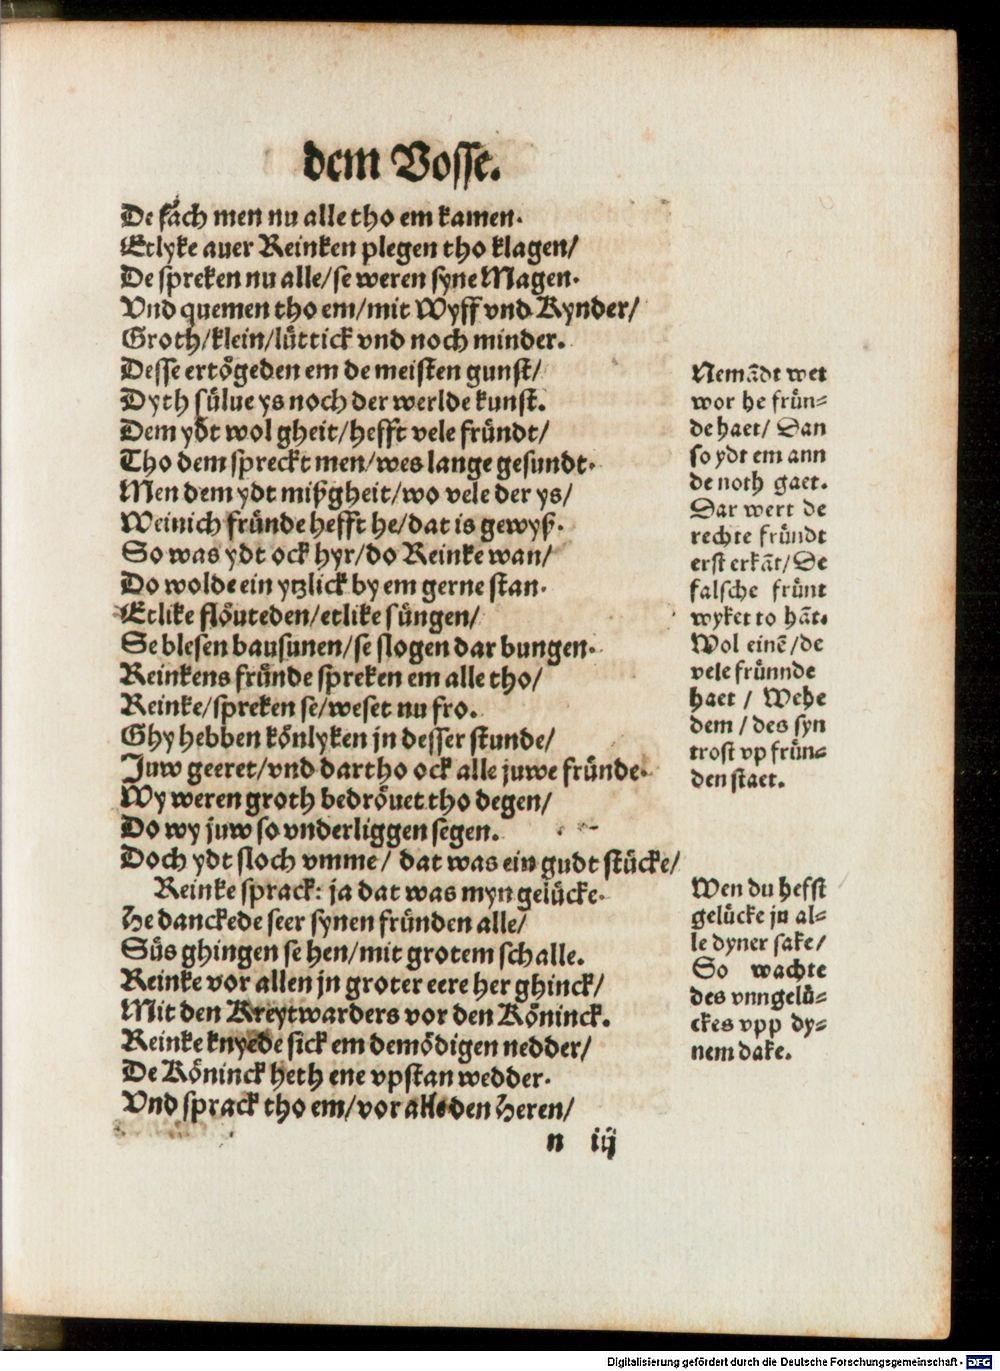 dem Vosse.
De saͤch men nu alle tho em kamen.
Etlyke auer Reinken plegen tho klagen/
De spreken nu alle/se weren syne Magen.
Vnd quemen tho em/mit Wyff vnd Kynder/
Groth/klein/luͤttick vnd noch minder.
Desse ertoͤgeden em de meisten gunst/
Dyth suͤlue ys noch der werlde kunst.
Dem ydt wol gheit/hefft vele fruͤndt/
Tho dem spreckt men/wes lange gesundt.
Men dem ydt mißgheit/wo vele der ys/
Weinich fruͤnde hefft he/dat is gewyß.
So was ydt ock hyr/do Reinke wan/
Do wolde ein ytzlick by em gerne stan.
Etlike floͤuteden/etlike suͤngen/
Se blesen bausunen/se slogen dar bungen.
Reinkens fruͤnde spreken em alle tho/
Reinke/spreken se/weset nu fro.
Ghy hebben koͤnlyken jn desser stunde/
Juw geeret/vnd dartho ock alle juwe fruͤnde.
Wy weren groth bedroͤuet tho degen/
Do wy juw so vnderliggen segen.
Doch ydt sloch vmme/ dat was ein gudt stuͤcke/
Reinke sprack: ja dat was myn geluͤcke.
He danckede seer synen fruͤnden alle/
Suͤs ghingen se hen/mit grotem schalle.
Reinke vor allen jn groter eere her ghinck/
Mit den Kreytwarders vor den Koͤninck.
Reinke knyede sick em demoͤdigen nedder/
De Koͤninck heth ene vpstan wedder.
Vnd sprack tho em/vor alle den Heren/
n iij
Nemãdt wet
wor he fruͤn=
de haet/ Dan
so ydt em ann
de noth gaet.
Dar wert de
rechte fruͤndt
erst erkãt/De
falsche fruͤnt
wyket to hãt.
Wol einẽ/de
vele fruͤnnde
haet / Wehe
dem / des syn
trost vp fruͤn=
den staet.
Wen du hefst
geluͤcke jn al=
le dyner sake/
So wachte
des vnngeluͤ=
ckes vpp dy=
nem dake.
Digitalisierung gefördert durch die Deutsche Forschungsgemeinschaft - DFG